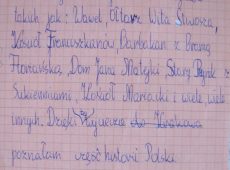 takich jak: Wawel, Ołtarz Wita Stwosza,
Kościół Franciszkanów, Barbakan z Bramą
Floriańską, Dom Jana Matejki Stary Rynek z
Sukiennicami, Kościół Mariacki i wiele, wiele
innych. Dzięki wycieczce do Krakowa
poznałam część historii Polski.